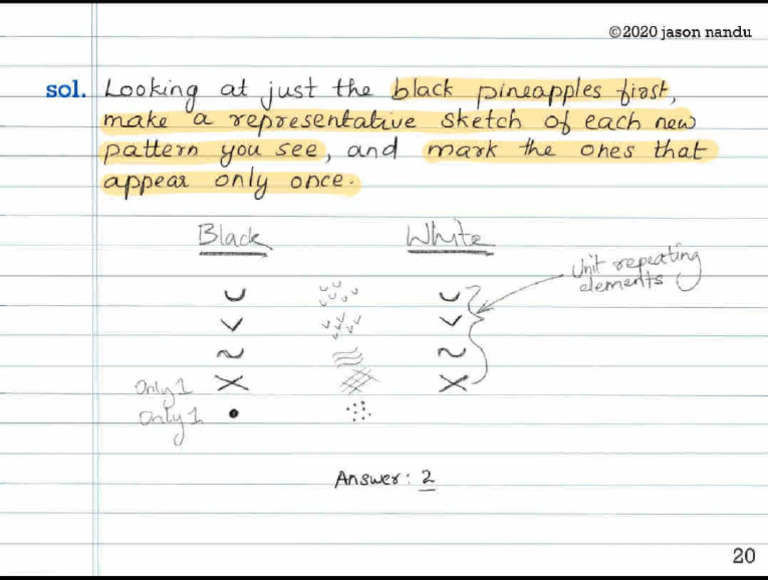 ©2020 jason nandu
sol. Looking at just the black pineapples first,
make a representative sketch of each new
pattern you see, and mark the ones that
appear only once.
Black White
Unit repeating
elements
Only 1
Only 1
Answer: 2
20